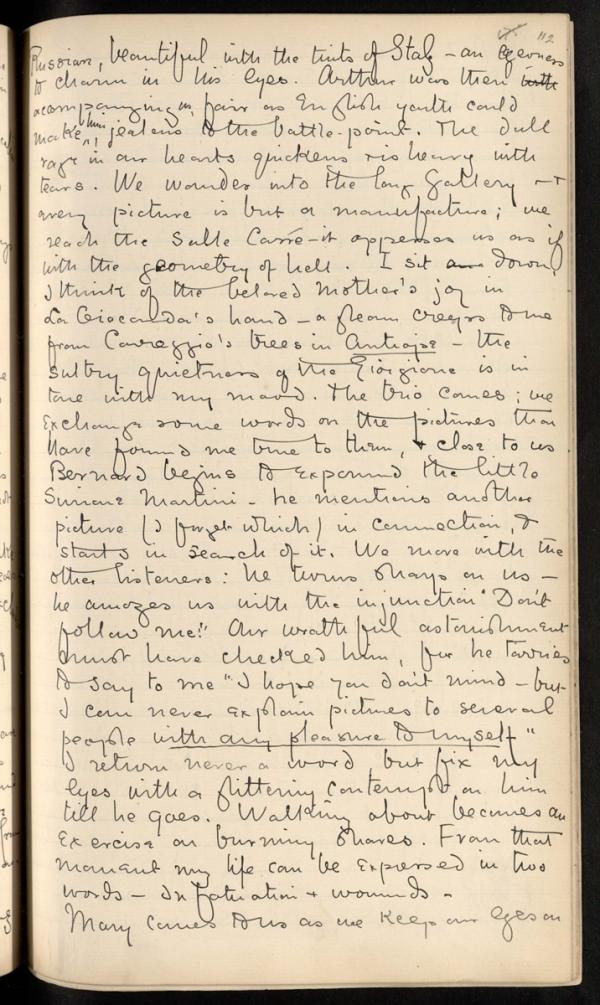 112
Russian, beautiful with the tints of Italy – an eagerness
to charm in his eyes. Arthur was then with
accompanying us, fair as English youth could
make him, jealous to the battle-point. The dull
rage in our hearts quickens & is heavy with
tears. We wander into the long Gallery –
every picture is but a manufacture; we
reach the Salle Carré – it oppresses us as if
with the geometry of hell. I sit down,
I think of the beloved Mother's joy in
La Gioconda's hand – a gleam creeps to me
from Correggio's trees in Antiope – the
sultry quietness of the Giorgione is in
tune with my mood. The trio comes; we
exchange some words on the pictures that
have found me true to them, & close to us
Bernard begins to expound the little
Simone Martini – he mentions another
picture (I forget which) in connection, &
starts in search of it. We move with the
other listeners: he turns sharp on us –
he amazes us with the injunction "Don't
follow me!" Our wrathful astonishment
must have checked him, for he tarries
to say to me "I hope you don't mind – but
I can never explain pictures to several
people with any pleasure to myself"
I return never a word, but fix my
eyes with a glittering contempt on him
till he goes. Walking about becomes an
exercise on burning shares. From that
moment my life can be expressed in two
words – Infatuation & wounds –
Mary comes to us as we keep our eyes on